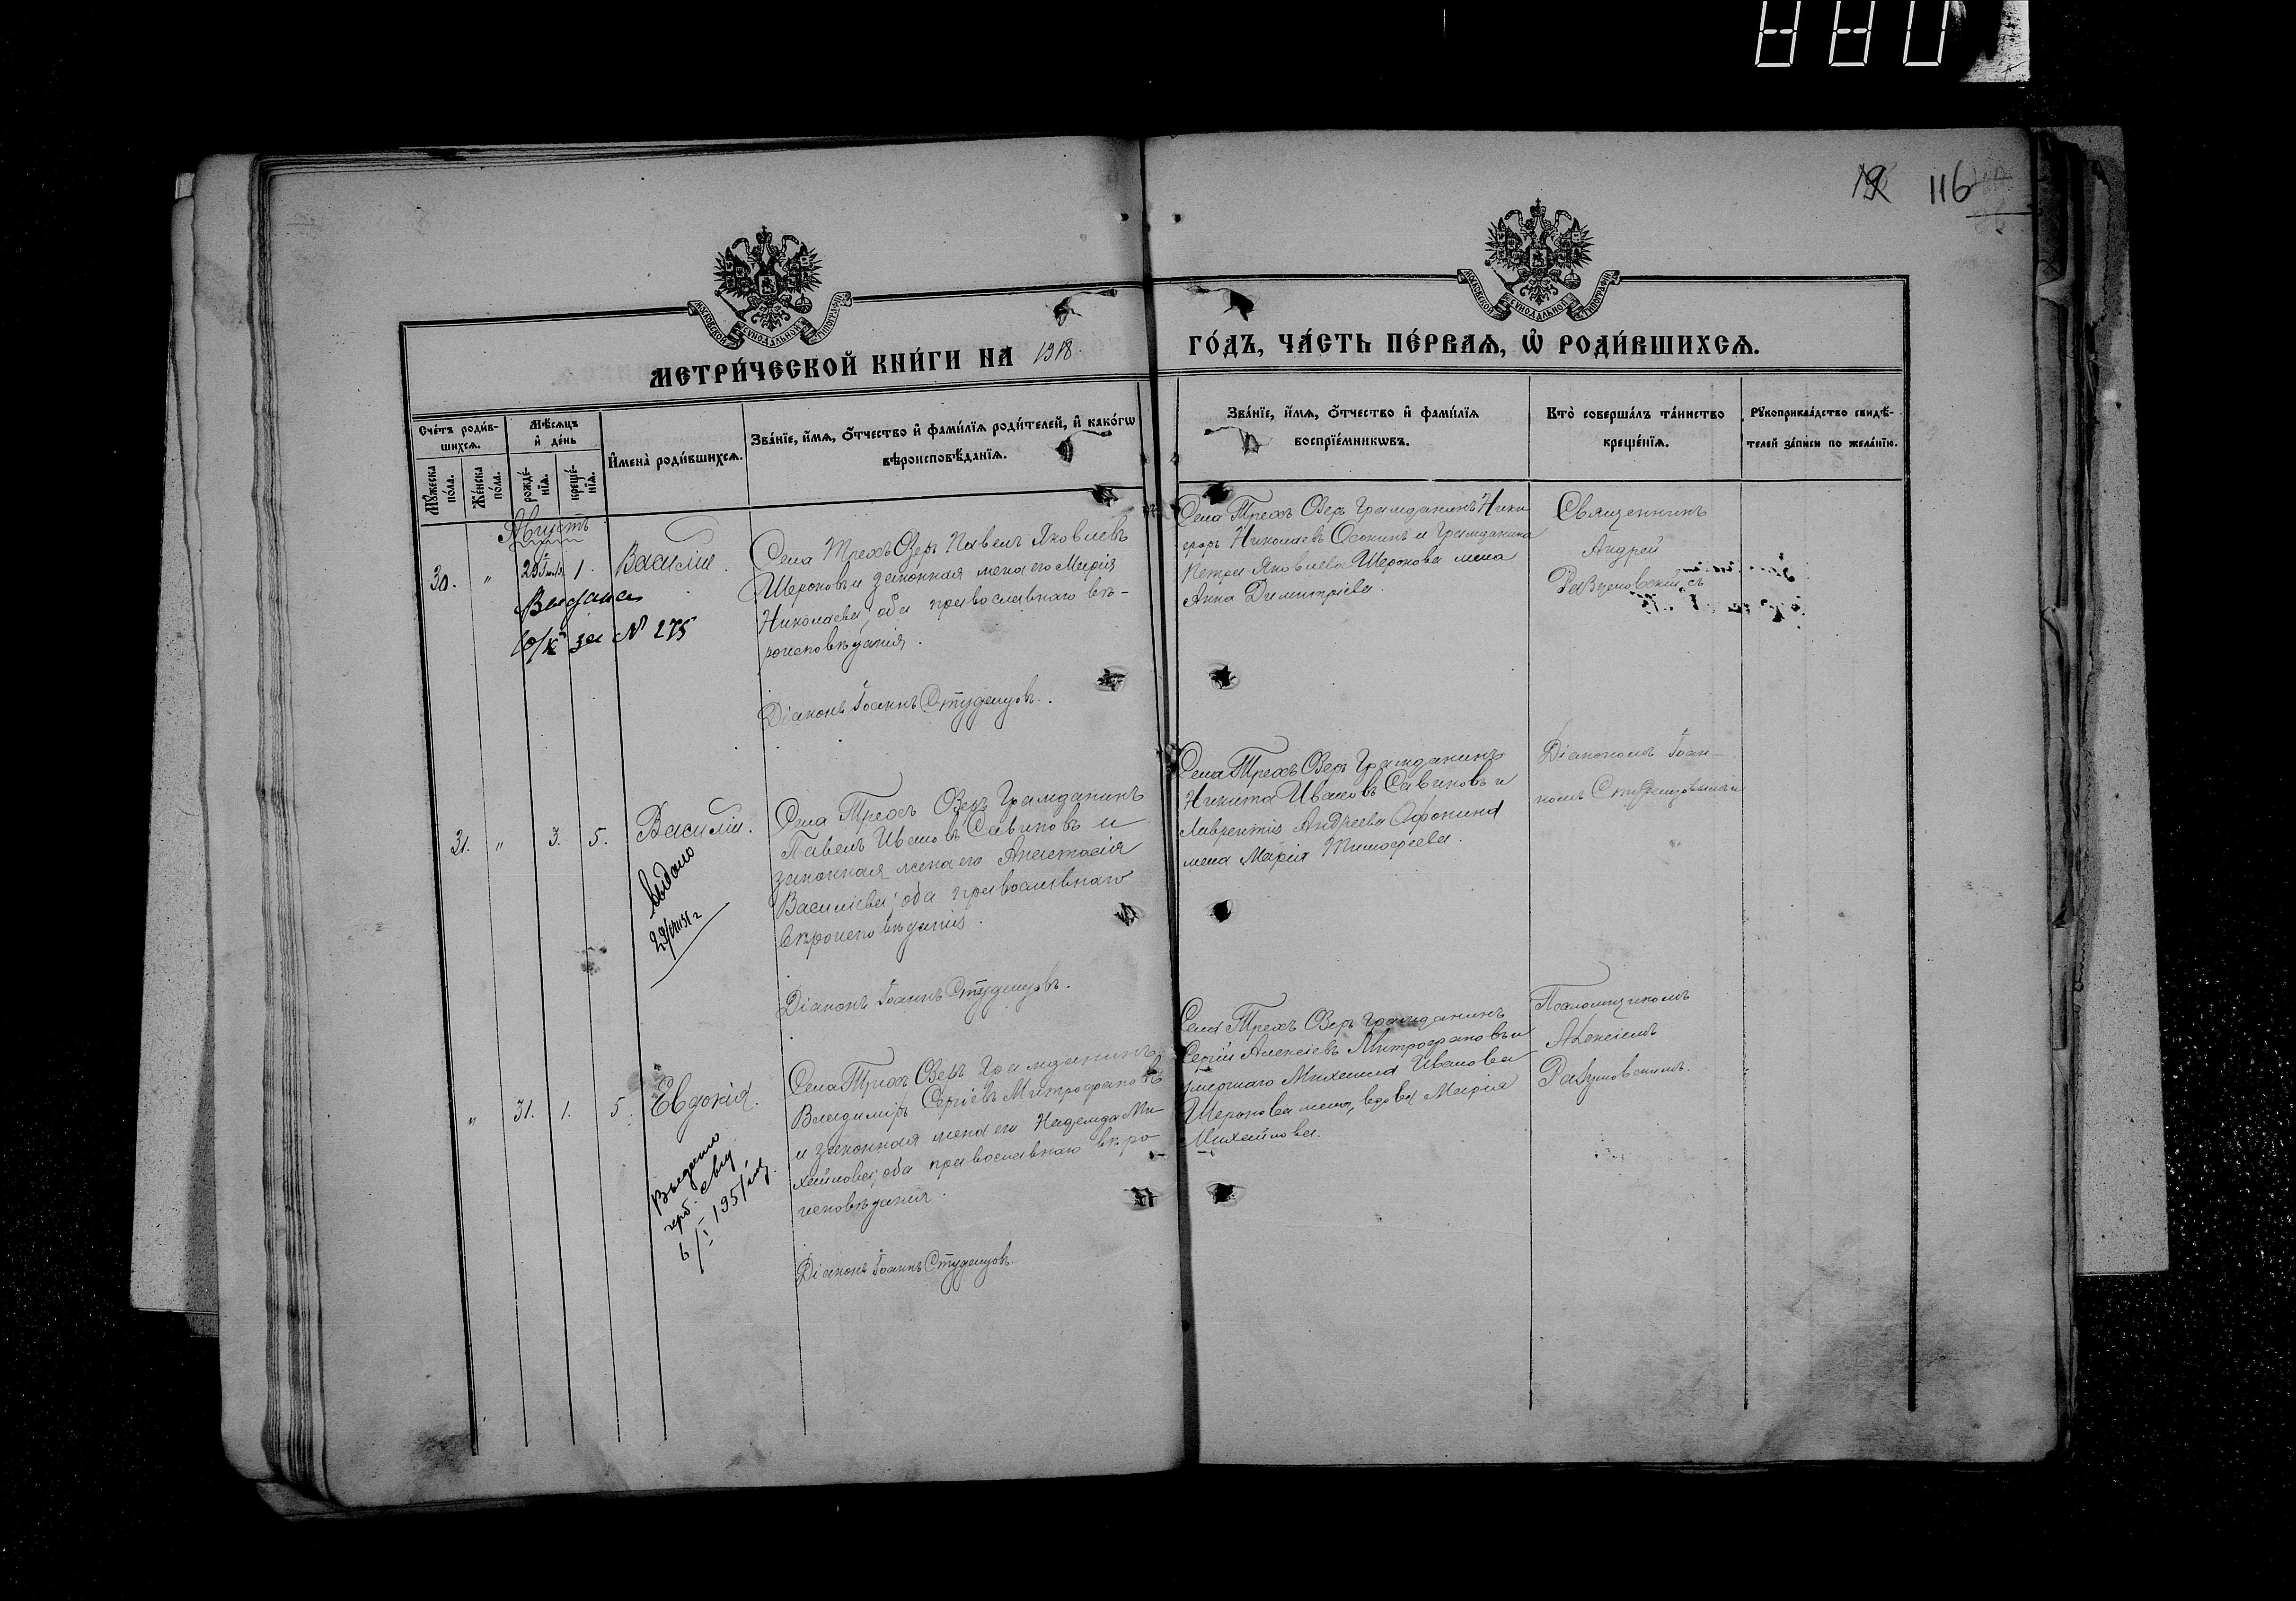 19 116
МОСКОВСКОЙ СѴНОДАЛЬНОЙ ТИПОГРАФІИ
МОСКОВСКОЙ СѴНОДАЛЬНОЙ ТИПОГРАФІИ
МЕТРИ́ЧЕСКОЙ КНИ́ГИ НА 1918. ГО́ДЪ, ЧА́СТЬ ПЕ́РВАѦ, Ѡ҆ РОДИ́ВШИХСѦ.
Сче́тъ роди́в-
шихсѧ.
Мꙋ́жеска по́ла.
Же́нска по́ла.
Мѣ́сѧцъ
и҆ де́нь
рожде́-нїѧ.
креще́-нїѧ.
И҆мена̀ роди́вшихсѧ.
Зва́нїе, и҆́мѧ, ѻ҆́тчество и҆ фами́лїѧ роди́телей, и҆ како́гѡ
вѣроисповѣ́данїѧ.
Зва́нїе, и҆́мѧ, ѻ҆́тчество и҆ фами́лїѧ
воспрїе́мникѡвъ.
Кто̀ соверша́лъ та́инство
креще́нїѧ.
Рꙋкоприкла́дство свидѣ́-
телей за́писи по жела́нїю.
Августъ
30. " 29 Іюля 1. Василій.
Выдана
за № 275
Села Трехъ Озеръ Павелъ Яковлевъ
Шероновъ и законная жена его Марія
Николаева; оба православнаго вѣ-
роисповѣданія.
Діаконъ Іоаннъ Студенцовъ.
Села Трехъ Озеръ Гражданинъ Ники
форъ Николаевъ Осокинъ и Гражданина
Петра Яковлева Шеронова жена
Анна Димитріева.
Священникъ
Андрей
31. " 3. 5. Василій.
Выдано
Села Трехъ Озеръ Гражданинъ
Павелъ Ивановъ Савиновъ и
законная жена его Анастасія
Василіева; оба православнаго
вѣроисповѣданія.
Діаконъ Іоаннъ Студенцовъ.
Села Трехъ Озеръ Гражданинъ
Никита Ивановъ Савиновъ и
Лаврентія Андреева Афонина
жена Марія Тимофеева.
Діакономъ Іоан-
номъ Студенцовымъ
" 31. 1. 5. Евдокія.
Выдано
6/I 1951
Села Трехъ Озеръ Гражданинъ
Владиміръ Сергіевъ Митрофановъ
и законная жена его Надежда Ми-
хайлова; оба православнаго вѣро-
исповѣданія.
Діаконъ Іоаннъ Студенцовъ.
Села Трехъ Озеръ Гражданинъ
Сергій Алексіевъ Митрофановъ и
умершаго Михаила Иванова
Шеронова жена, вдова Марія
Михайлова.
Псаломщикомъ
Алексіемъ
Разумовскимъ.